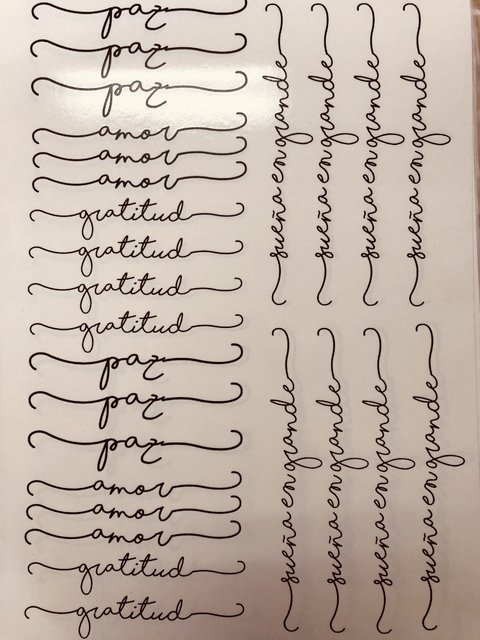 paz
paz
paz
amor
amor
amor
gratitud
gratitud
gratitud
gratitud
paz
paz
paz
amor
amor
amor
gratitud
gratitud
sueña en grande
sueña en grande
sueña en grande
sueña en grande
sueña en grande
sueña en grande
sueña en grande
sueña en grande